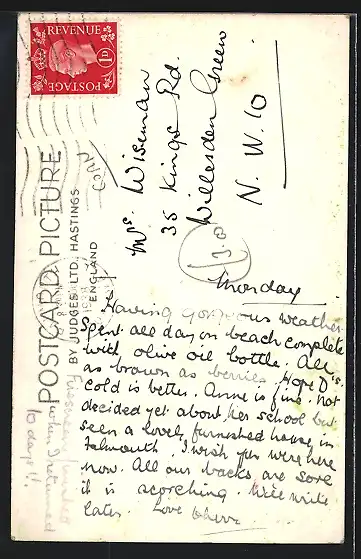 POSTAGE
REVENUE
1D
POSTCARD PICTURE
BY JUDGES LTD, HASTINGS
ENGLAND
Mrs. Wiseman
35 Kings Rd.
Willesden Green
N. W. 10
Monday
Having gorgeous weather
Spent all day on beach complete
with olive oil bottle. All
as brown as berries. Hope D's
cold is better. Anne is fine. Not
decided yet about her school but
seen a lovely furnished house in
Falmouth. I wish you were here
now. All our backs are sore
it is scorching. Will write
later. Love
when I returned
10 days!!